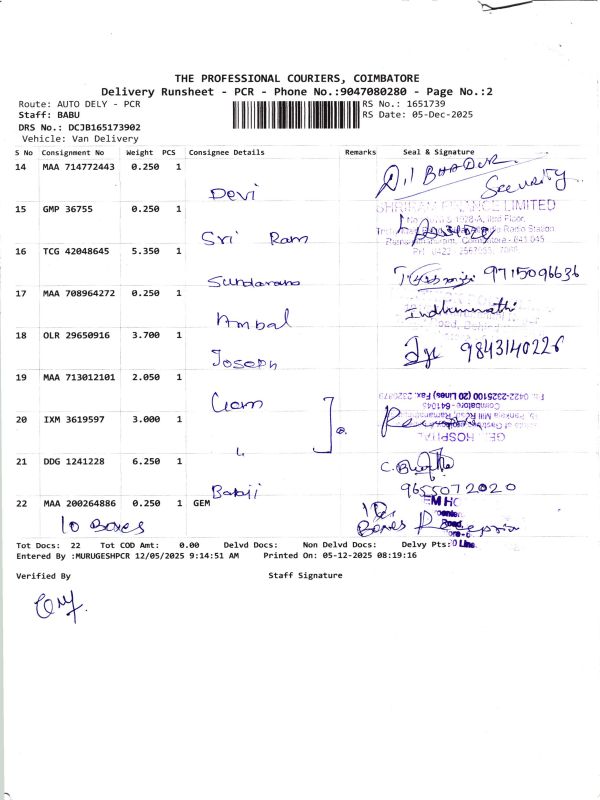 THE PROFESSIONAL COURIERS, COIMBATORE
Delivery Runsheet - PCR - Phone No.:9047080280 - Page No.:2
Route: AUTO DELY - PCR
RS No.: 1651739
Staff: BABU
RS Date: 05-Dec-2025
DRS No.: DCJB165173902
Vehicle: Van Delivery
S No Consignment No Weight PCS Consignee Details Remarks Seal & Signature
14 MAA 714772443 0.250 1
Dil BHADUR
Security
Devi
15 GMP 36755 0.250 1
LIMITED
Sri Ram
16 TCG 42048645 5.350 1
9715096636
Sundaram
17 MAA 708964272 0.250 1
Indhumathi
Ambal
18 OLR 29650916 3.700 1
9843140226
Joseph
19 MAA 713012101 2.050 1
Gem
20 IXM 3619597 3.000 1
HOSPITAL
21 DDG 1241228 6.250 1
9655072020
Babji
22 MAA 200264886 0.250 1 GEM
10 Boxes
10 Boxes
Tot Docs: 22 Tot COD Amt: 0.00 Delvd Docs: Non Delvd Docs: Delvy Pts:
Entered By :MURUGESHPCR 12/05/2025 9:14:51 AM Printed On: 05-12-2025 08:19:16
Verified By Staff Signature